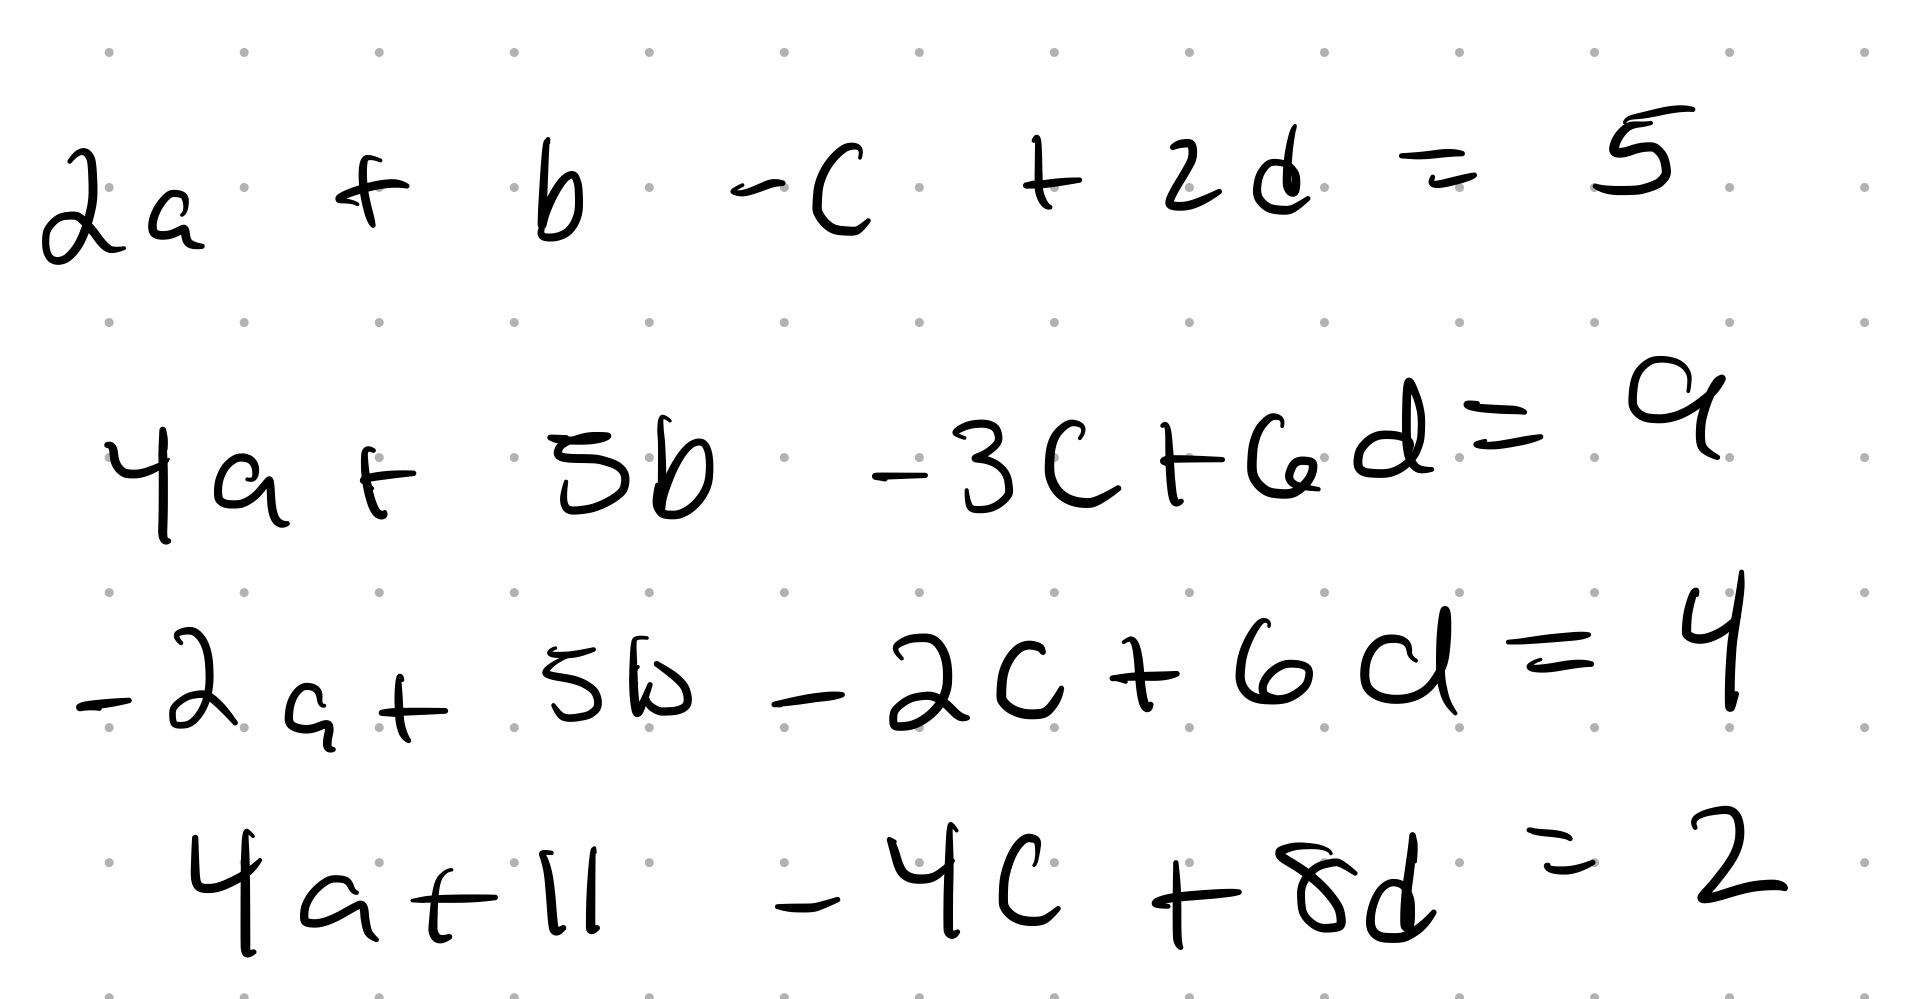 2a + b - c + 2d = 5
4a + 5b - 3c + 6d = 9
-2a + 5b - 2c + 6d = 4
4a + 11 - 4c + 8d = 2